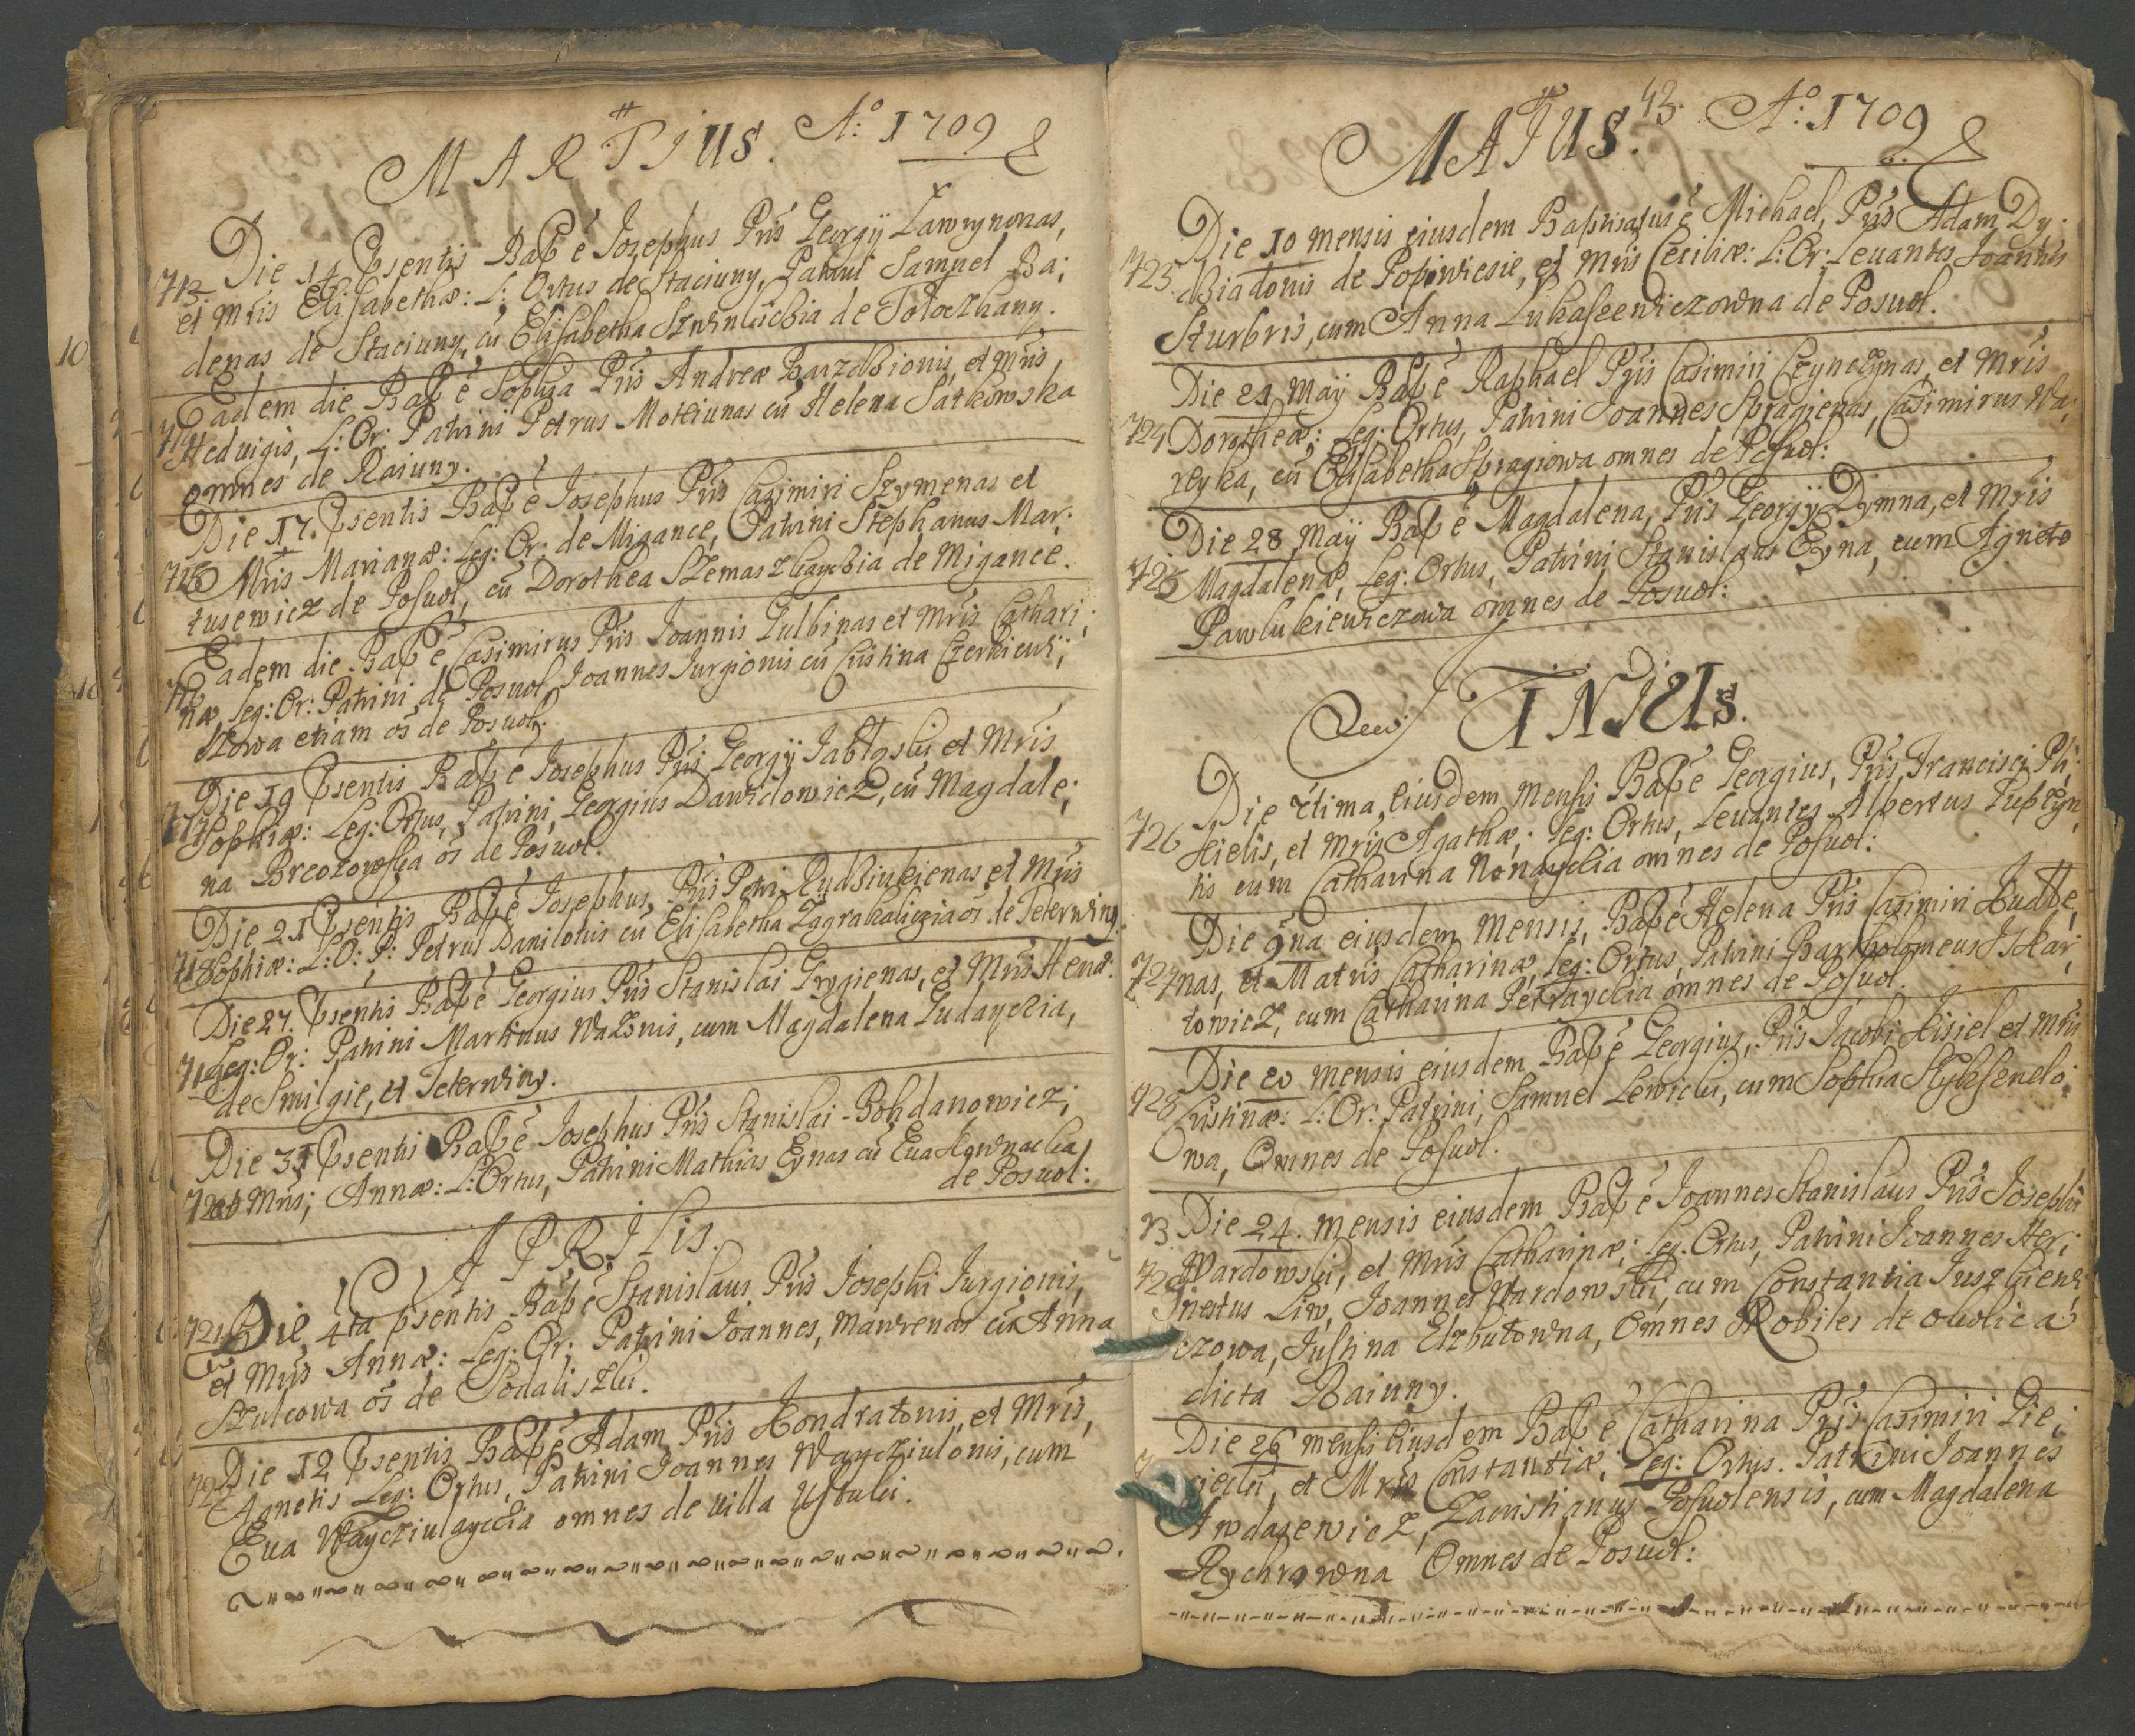 MARTIUS. Aº: 1709
Die 14 Psentis Bap: ẽ Josephus Pris Georgij Lawrynonas,
713 et Mris Elisabethæ: L: Ortus de Staciuny, Patrini Samuel Ba;
denas de Staciuny, cũ Elisabetha de Toloczkany.
Eadem die Bap: ẽ Sophia Pris Andreæ et Mris
714 Hedvigis, L: Or: Patrini Petrus Motieiunas cũ Helena Satkowska
omnes de Raiuny.
Die 17. Psentis Bap: ẽ Josephus Pris Casimiri Szymenas et
715 Mris Marianæ: Leg: Or: de Migance, Patrini Stephanus Mar;
tusewicz de Posvol, cũ Dorothea de Migance.
Eadem die Bap: ẽ Casimirus Pris Joannis Gulbinas et Mris Cathari;
716 næ, Leg: Or: Patrini de Posvol, Joannes Jurgionis cũ Cristina Czerkiewi;
czowa etiam õs de Posvol.
Die 19 Psentis Bap: ẽ Josephus Pris Georgij Jabłoski et Mris
717 Sophiæ: Leg: Ortus, Patrini, Georgius Dawidowicz, cũ Magdale;
na õs de Posvol.
Die 21 Psentis Bap: ẽ Josephus, Pris Petri et Mris
718 Sophiæ: L: O: P: Petrus Danilonis cũ Elisabetha õs de Teterwiny.
Die 27. Psentis Bap: ẽ Georgius Pris Stanislai Grygienas, et Mris
719 Leg: Or: Patrini Martinus Wazonis, cum Magdalena Gudaycia,
de Smilgie, et Teterwiny.
Die 31 Psentis Bap: ẽ Josephus Pris Stanislai Bohdanowicz;
720 et Mris; Annæ: L: Ortus, Patrini Mathias Eynas cũ Eva
de Posvol:
APRILis.
721 Die 4ta psentis Bap: ẽ Stanislaus Pris Josephi Jurgionis,
et Mris Annæ: Leg: Or: Patrini Joannes, Mawrenas cũ Anna
Szulcowa õs de Podaliszki.
Die 12 Psentis Bap: ẽ Adam Pris Kondratonis, et Mris,
722 Agnetis Leg: Ortus, Patrini Joannes Waycziulonis, cum
Eva Waycziulaycia omnes de villa Ustuki.
43.
MAJUS. Aº: 1709
Die 10 mensis eiusdem Baptisatus ẽ Michael, Pris Adam Dy;
723 dziadonis de Popiwiesie, et Mris Ceciliæ: L: Or: Levantes Joannes
Sturbris, cum Anna Lukaszewiczowna de Posvol.
Die 21 Maij Bap: ẽ Raphael Pris Casimiri Ceynczynas, et Mris
724 Dorotheæ: Leg: Ortus, Patrini Joannes Spragienas, Casimirus Wa;
reyka, cũ Elisabetha Spragiowa omnes de Posvol:
Die 28 Maij Bap: ẽ Magdalena, Pris Georgij Dymna, et Mris
725 Magdalenæ, Leg: Ortus, Patrini Stanislaus Eyna, cum Agneta
Pawlukiewiczowa omnes de Posvol:
JUNIUs.
Die 7tima, eiusdem Mensis Bap: ẽ Georgius, Pris Francisci
726 et Mris Agathæ; Leg: Ortus, Levantes Albertus
nis cum Catharina Nonaycia omnes de Posvol:
Die 9na eiusdem Mensis, Bap: ẽ Helena Pris Casimiri Kudbe;
727 nas, et Matris Catharinæ, Leg: Ortus, Patrini Bartholomeus
towicz, cum Catharina Petraycia omnes de Posvol.
Die 20 mensis eiusdem Bap: ẽ Georgius, Pris Jacobi Kisiel et Mris
728 Cristinæ: L: Or: Patrini, Samuel Lewicki, cum Sophia
wa, Omnes de Posvol.
Die 24. mensis eiusdem Bap: ẽ Joannes Stanislaus Pris Josephi
729 Wardowski, et Mris Catharinæ; Leg: Ortus, Patrini Joannes
Joannes Wardowski, cum Constantia Juszkiewi;
czowa, Justina Elzbutowna, Omnes Nobiles de
dicta Raiuny.
Die 26 mensis eiusdem Bap: ẽ Catharina Pris Casimiri Pie;
et Mris Constantiæ; Leg: Ortus. Patrini Joannes
Posvolensis, cum Magdalena
Rychrowna Omnes de Posvol: